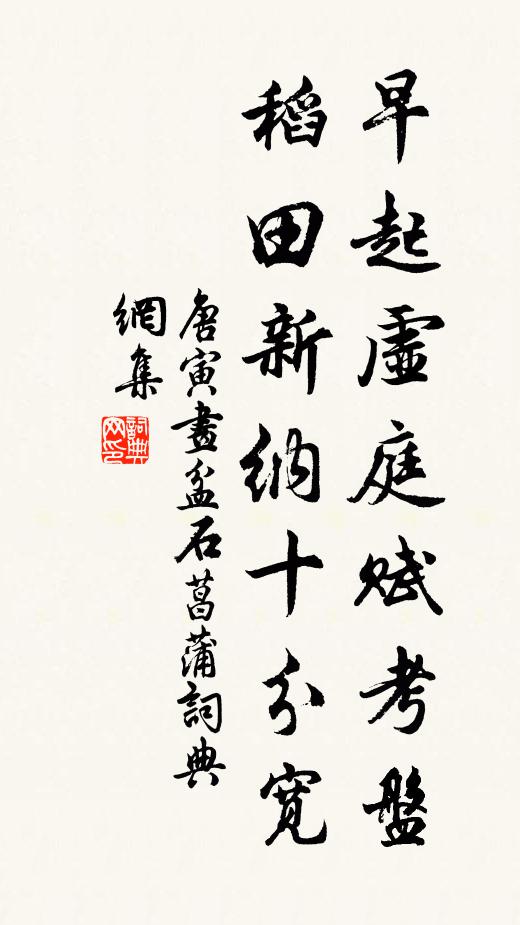 早起虛庭賦考盤
稻田新納十分寬
唐寅畫盆石菖蒲詞典
網集
詞典
网印